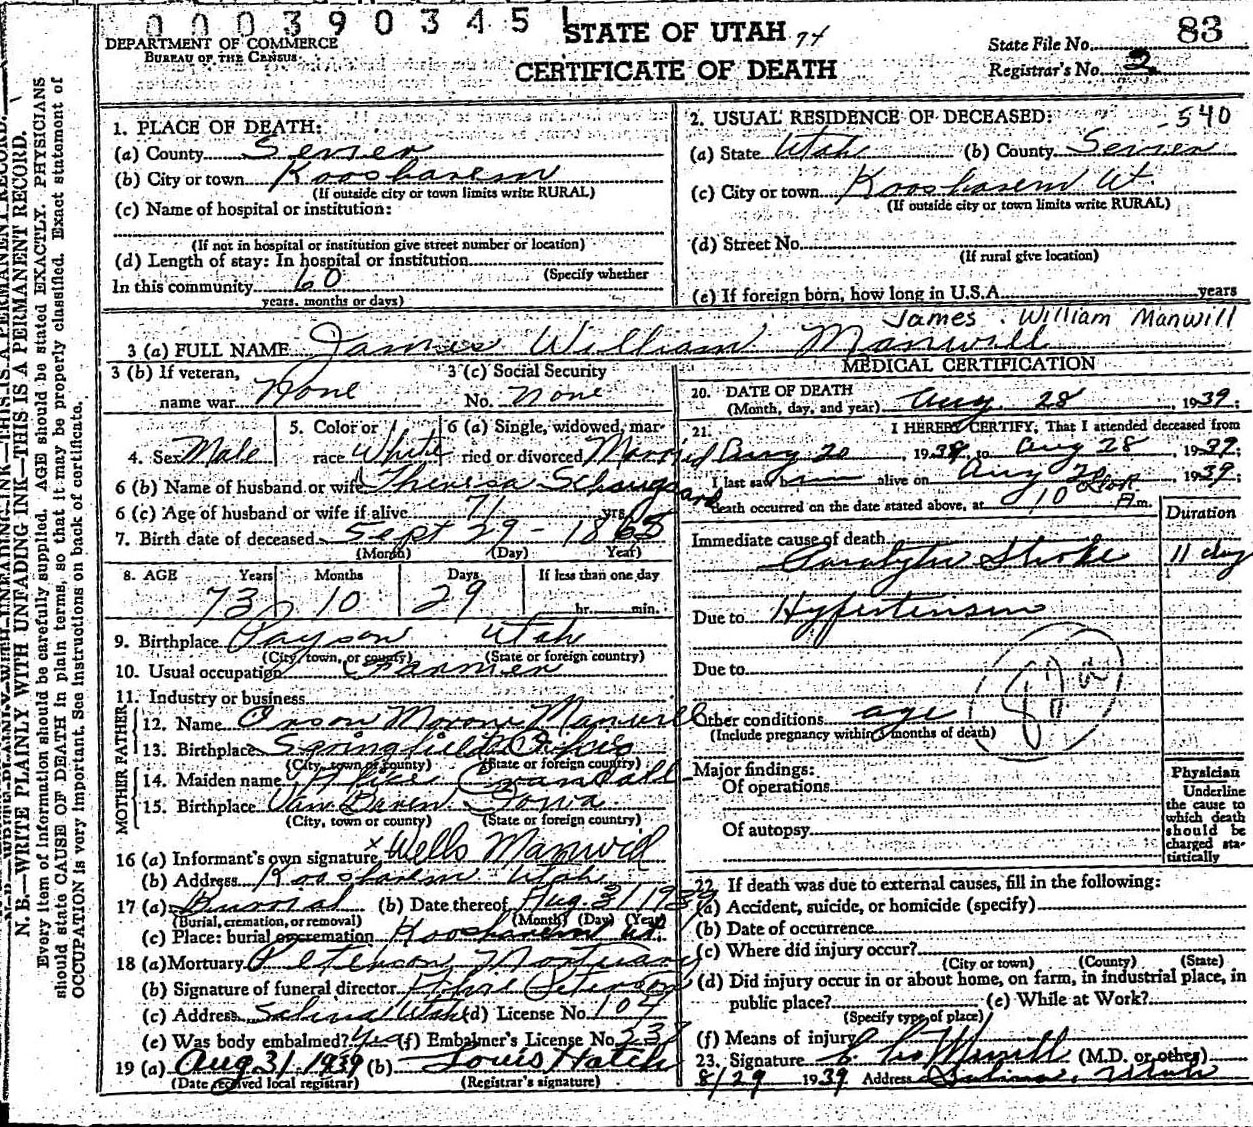 000390345
STATE OF UTAH 74
83
DEPARTMENT OF COMMERCE
BUREAU OF THE CENSUS
State File No.
CERTIFICATE OF DEATH
Registrar's No. 2
N. B.—WRITE PLAINLY WITH UNFADING INK—THIS IS A PERMANENT RECORD.
Every item of information should be carefully supplied. AGE should be stated EXACTLY. PHYSICIANS
should state CAUSE OF DEATH in plain terms, so that it may be properly classified. Exact statement of
OCCUPATION is very important. See instructions on back of certificate.
1. PLACE OF DEATH:
(a) County Sevier
(b) City or town Koosharem
(If outside city or town limits write RURAL)
(c) Name of hospital or institution:
(If not in hospital or institution give street number or location)
(d) Length of stay: In hospital or institution
(Specify whether
In this community 60
years, months or days)
2. USUAL RESIDENCE OF DECEASED: -540
(a) State Utah (b) County Sevier
(c) City or town Koosharem Ut.
(If outside city or town limits write RURAL)
(d) Street No.
(If rural give location)
(e) If foreign born, how long in U.S.A. years
James William Manwill
3 (a) FULL NAME James William Manwill
3 (b) If veteran, name war None
3 (c) Social Security No. None
4. Sex Male
5. Color or race White
6 (a) Single, widowed, married or divorced Married
6 (b) Name of husband or wife Theresa Schougaard
6 (c) Age of husband or wife if alive 71 yrs.
7. Birth date of deceased Sept 29 - 1865
(Month) (Day) Year)
8. AGE Years Months Days If less than one day
73 10 29 hr. min.
9. Birthplace Payson Utah
(City, town, or county) (State or foreign country)
10. Usual occupation Farmer
11. Industry or business
FATHER
12. Name Orson Moroni Manwill
13. Birthplace Springfield
(City, town or county) (State or foreign country)
MOTHER
14. Maiden name Crandall
15. Birthplace Van Buren Iowa
(City, town or county) (State or foreign country)
16 (a) Informant's own signature x Wells Manwill
(b) Address Koosharem Utah
17 (a) Burial (b) Date thereof Aug 31 1939
(Burial, cremation, or removal) (Month) (Day) (Year)
(c) Place: burial or cremation Koosharem Ut.
18 (a) Mortuary Peterson Mortuary
(b) Signature of funeral director Peterson
(c) Address Salina Utah (d) License No. 107
(e) Was body embalmed? Yes (f) Embalmer's License No. 237
19 (a) Aug 31, 1939 (b) Louis Hatch
(Date received local registrar) (Registrar's signature)
MEDICAL CERTIFICATION
20. DATE OF DEATH
(Month, day, and year) Aug. 28, 1939;
21. I HEREBY CERTIFY, That I attended deceased from
Aug 20, 1939, to Aug 28, 1939;
I last saw him alive on Aug, 1939;
death occurred on the date stated above, at 10 A m.
Duration
Immediate cause of death
Paralytic Stroke 11 day
Due to Hypertension
Due to
Other conditions age
(Include pregnancy within 3 months of death)
Major findings:
Of operations
Of autopsy
Physician
Underline
the cause to
which death
should be
charged sta-
tistically
22. If death was due to external causes, fill in the following:
(a) Accident, suicide, or homicide (specify)
(b) Date of occurrence
(c) Where did injury occur?
(City or town) (County) (State)
(d) Did injury occur in or about home, on farm, in industrial place, in
public place? (e) While at Work?
(Specify type of place)
(f) Means of injury
23. Signature (M.D. or other)
8/29 1939 Address Salina, Utah